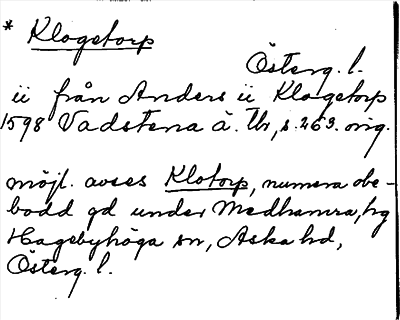 * Klogetorp
Österg. l.
ii från Anders ii Klogetorp
1598 Vadstena ä. Tb, s. 263. orig.
möjl. avses Klotorp, numera obe-
bodd gd under Medhamra, hg
Hagebyhöga sn, Aska hd,
Österg. l.